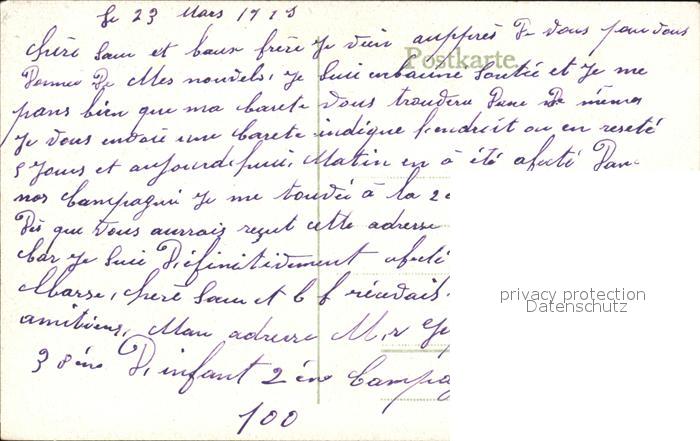 le 23 Mars 1915
chère Sœur et baux frère je vien aupprès de vous pour vous
Postkarte.
Donner De Mes nouvels, je suie en baune Santié et je me
pans bien que ma carete vous trouvera Dane De même
je vous envoie une carete indique l'endroit ou en resté
5 jours et aujourdehuie, Matin en à été afecté Dan
nos Compagnie je me trouvée à la 2e
Dès que vous aurrais reçut cette adresse
car je suie Définitivement afecté
Marse, chère Sœur et b f réendais
amitiers, Mon adresse M, r
38ène D, infant 2ène Compag
100
privacy protection
Datenschutz